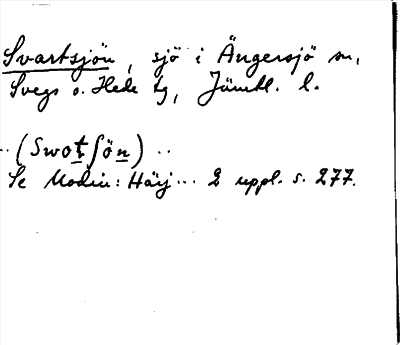 Svartsjön, sjö i Ängersjö sn,
Svegs o. Hede tg, Jämtl. l.
··(Swotʃön)··
Se Modin: Härj... 2 uppl. s. 277.